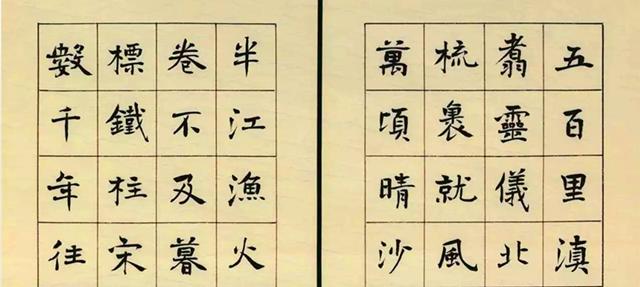 五百里滇
翥靈儀北
梳裹就風
萬頃晴沙
半江漁火
卷不及暮
標鐵柱宋
數千年往